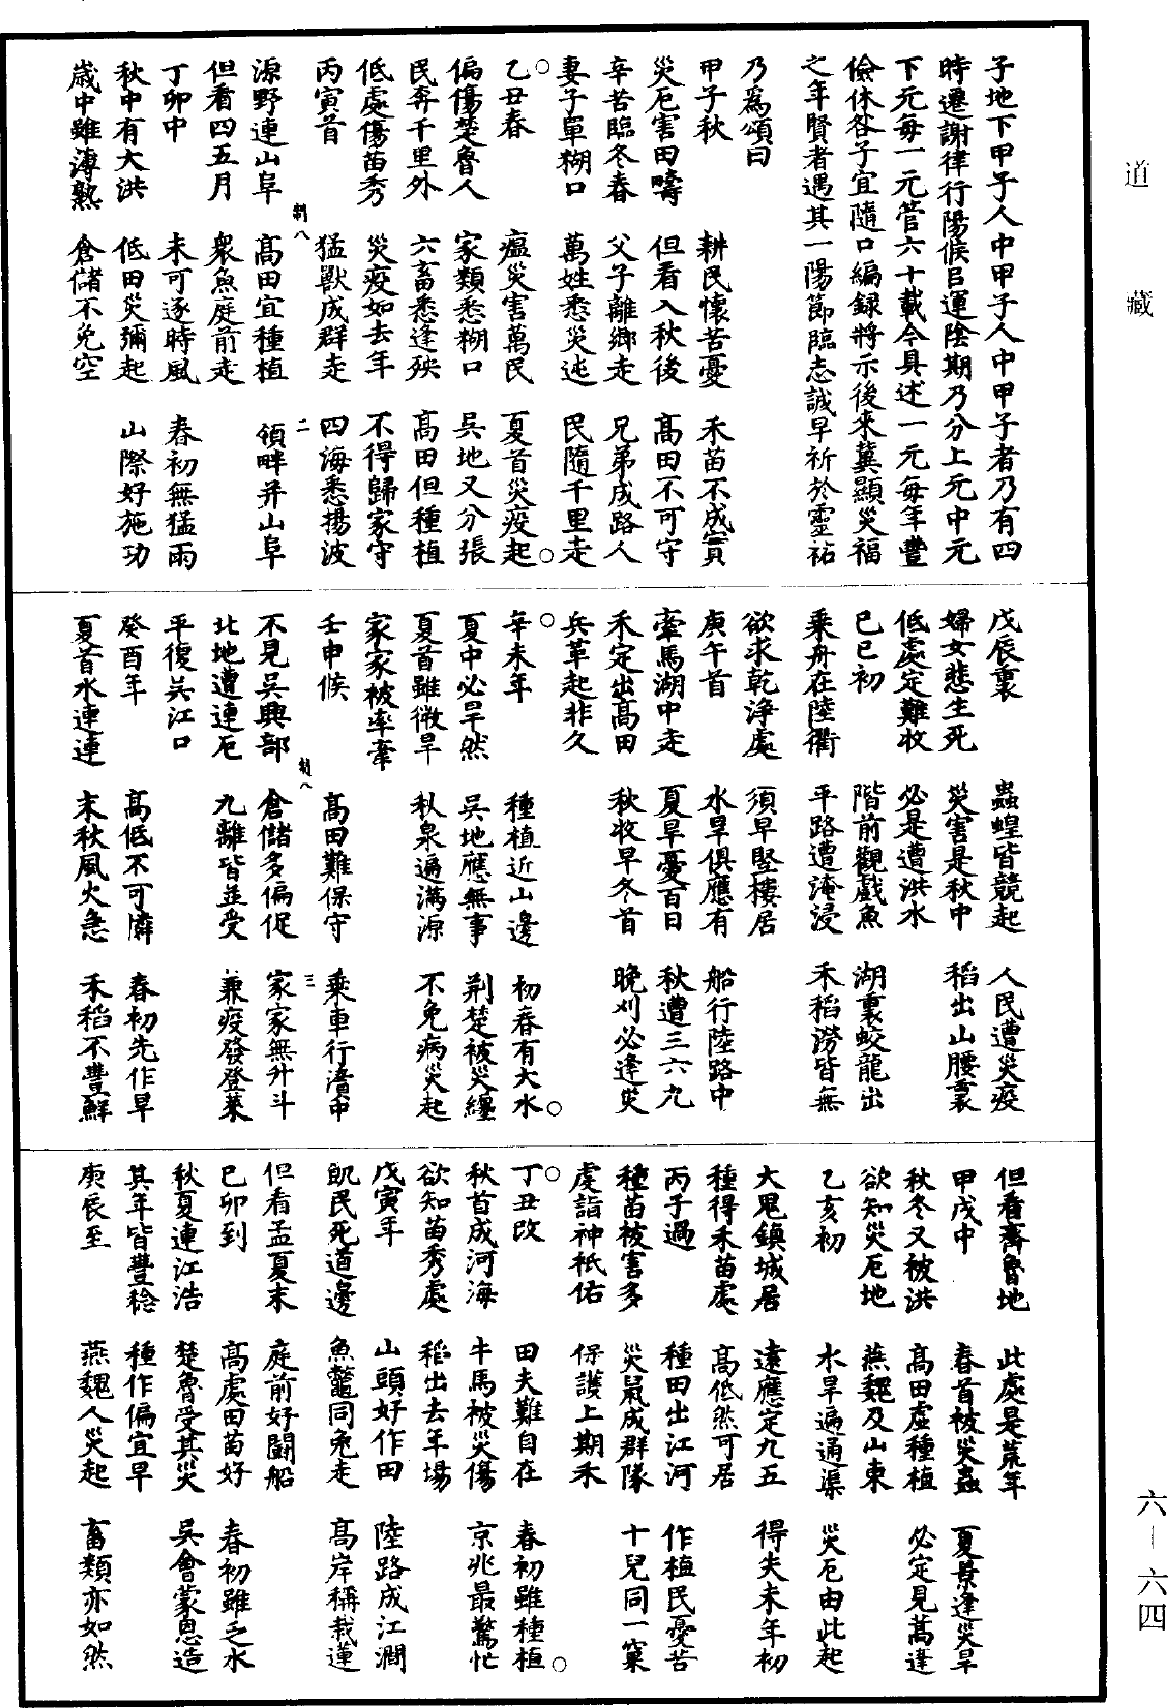 子地下甲子人中甲子人中甲子者乃有四
時遷謝律行陽候呂運陰期乃分上元中元
下元每一元管六十載今具述一元每年豐
儉休咎子宜隨口編録將示後來冀顯災福
之年賢者遇其一陽節臨志誠早祈於靈祐
乃爲頌曰
甲子秋 耕民懷苦憂 禾苗不成實
災厄害田疇 但看入秋後 高田不可守
辛苦臨冬春 父子離鄉走 兄弟成路人
妻子單糊口 萬姓悉災迍 民隨千里走
乙丑春 瘟災害萬民 夏首災疫起
偏傷楚魯人 家類悉糊口 吳地又分張
民奔千里外 六畜悉逢殃 高田但種植
低處傷苗秀 災疫如去年 不得歸家守
丙寅首 猛獸成群走 四海悉揚波
制八 二
源野連山阜 高田宜種植 領畔并山阜
但看四五月 衆魚庭前走
丁卯中 未可逐時風 春初無猛雨
秋中有大洪 低田災彌起 山際好施功
歲中雖薄熟 倉儲不免空
戊辰裏 蟲蝗皆競起 人民遭災疫
婦女悲生死 災害是秋中 稻出山腰裏
低處定難收 必是遭洪水
己巳初 階前觀戲魚 湖裏蛟龍出
乘舟在陸衢 平路遭淹浸 禾稻澇皆無
欲求乾淨處 須早堅樓居
庚午首 水旱俱應有 船行陸路中
牽馬湖中走 夏旱憂百日 秋遭三六九
禾定出高田 秋收早冬首 晚刈必逢災
兵革起非久
辛未年 種植近山邊 初春有大水
夏中必旱然 吳地應無事 荆楚被災纏
夏首雖微旱 秋泉遍滿源 不免病災起
家家被牽牽
壬申候 高田難保守 乘車行濆中
制八 三
不見吳興部 倉儲多偏促 家家無升斗
北地遭連厄 九離皆並受 兼疫發登萊
平復吳江口
癸酉年 高低不可憐 春初先作旱
夏首水連連 末秋風火急 禾稻不豐鮮
但看齊魯地 此處是荒年
甲戌中 春首被災蟲 夏景逢災旱
秋冬又被洪 高田虛種植 必定見蒿蓬
欲知災厄地 燕魏及山東
乙亥初 水旱遍通渠 災厄由此起
大鬼鎮城居 遠應定九五 得失未年初
種得禾苗處 高低然可居
丙子過 種田出江河 作植民憂苦
種苗被害多 災鼠成群隊 十兒同一窠
虔詣神祇佑 保護上期禾
丁丑改 田夫難自在 春初雖種植
秋首成河海 牛馬被災傷 京兆最驚忙
欲知苗秀處 稻出去年場
戊寅年 山頭好作田 陸路成江澗
飢民死道邊 魚鼈同兔走 高岸稱栽蓮
但看孟夏末 庭前好鬭船
己卯到 高處田苗好 春初雖乏水
秋夏連江浩 楚魯受其災 吳會蒙恩造
其年皆豐稔 種作偏宜早
庚辰至 燕魏人災起 畜類亦如然
道 藏
六—六四